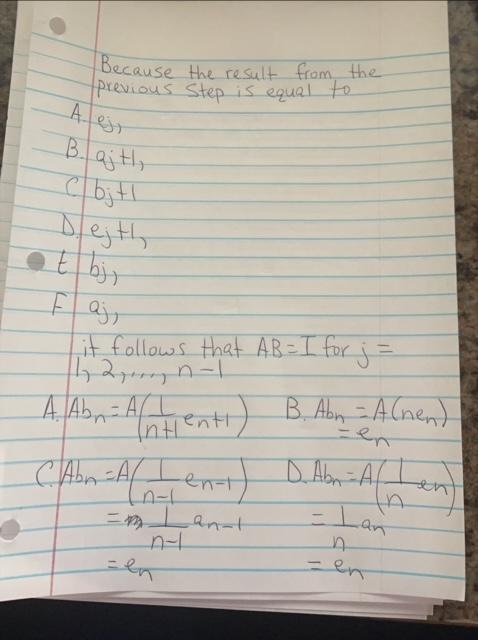 Because the result from the
previous step is equal to
A. ej,
B. aj+1,
C bj+1
D. ej+1,
E bj,
F aj,
it follows that AB=I for j=
1, 2,..., n-1
A. Abn = A(1/n+1 en+1)
B. Abn = A(nen)
= en
C. Abn = A(1/n-1 en-1)
= 1/n-1 an-1
= en
D. Abn = A(1/n en)
= 1/n an
= en